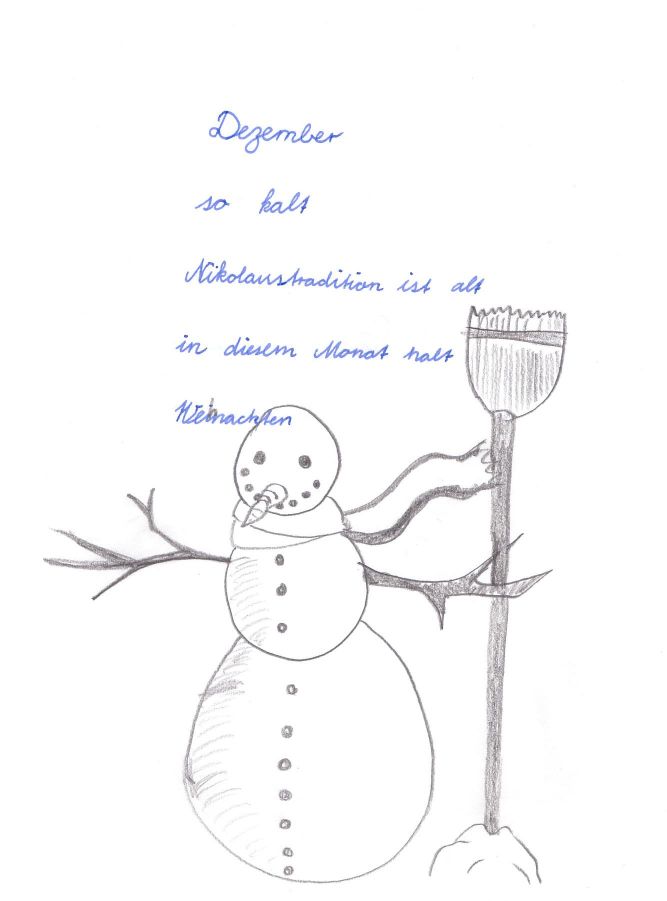 Dezember
so kalt
Nikolaustradition ist alt
in diesem Monat halt
Weihnachten